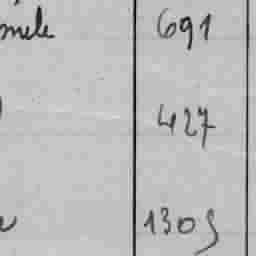 mele 691
427
1305